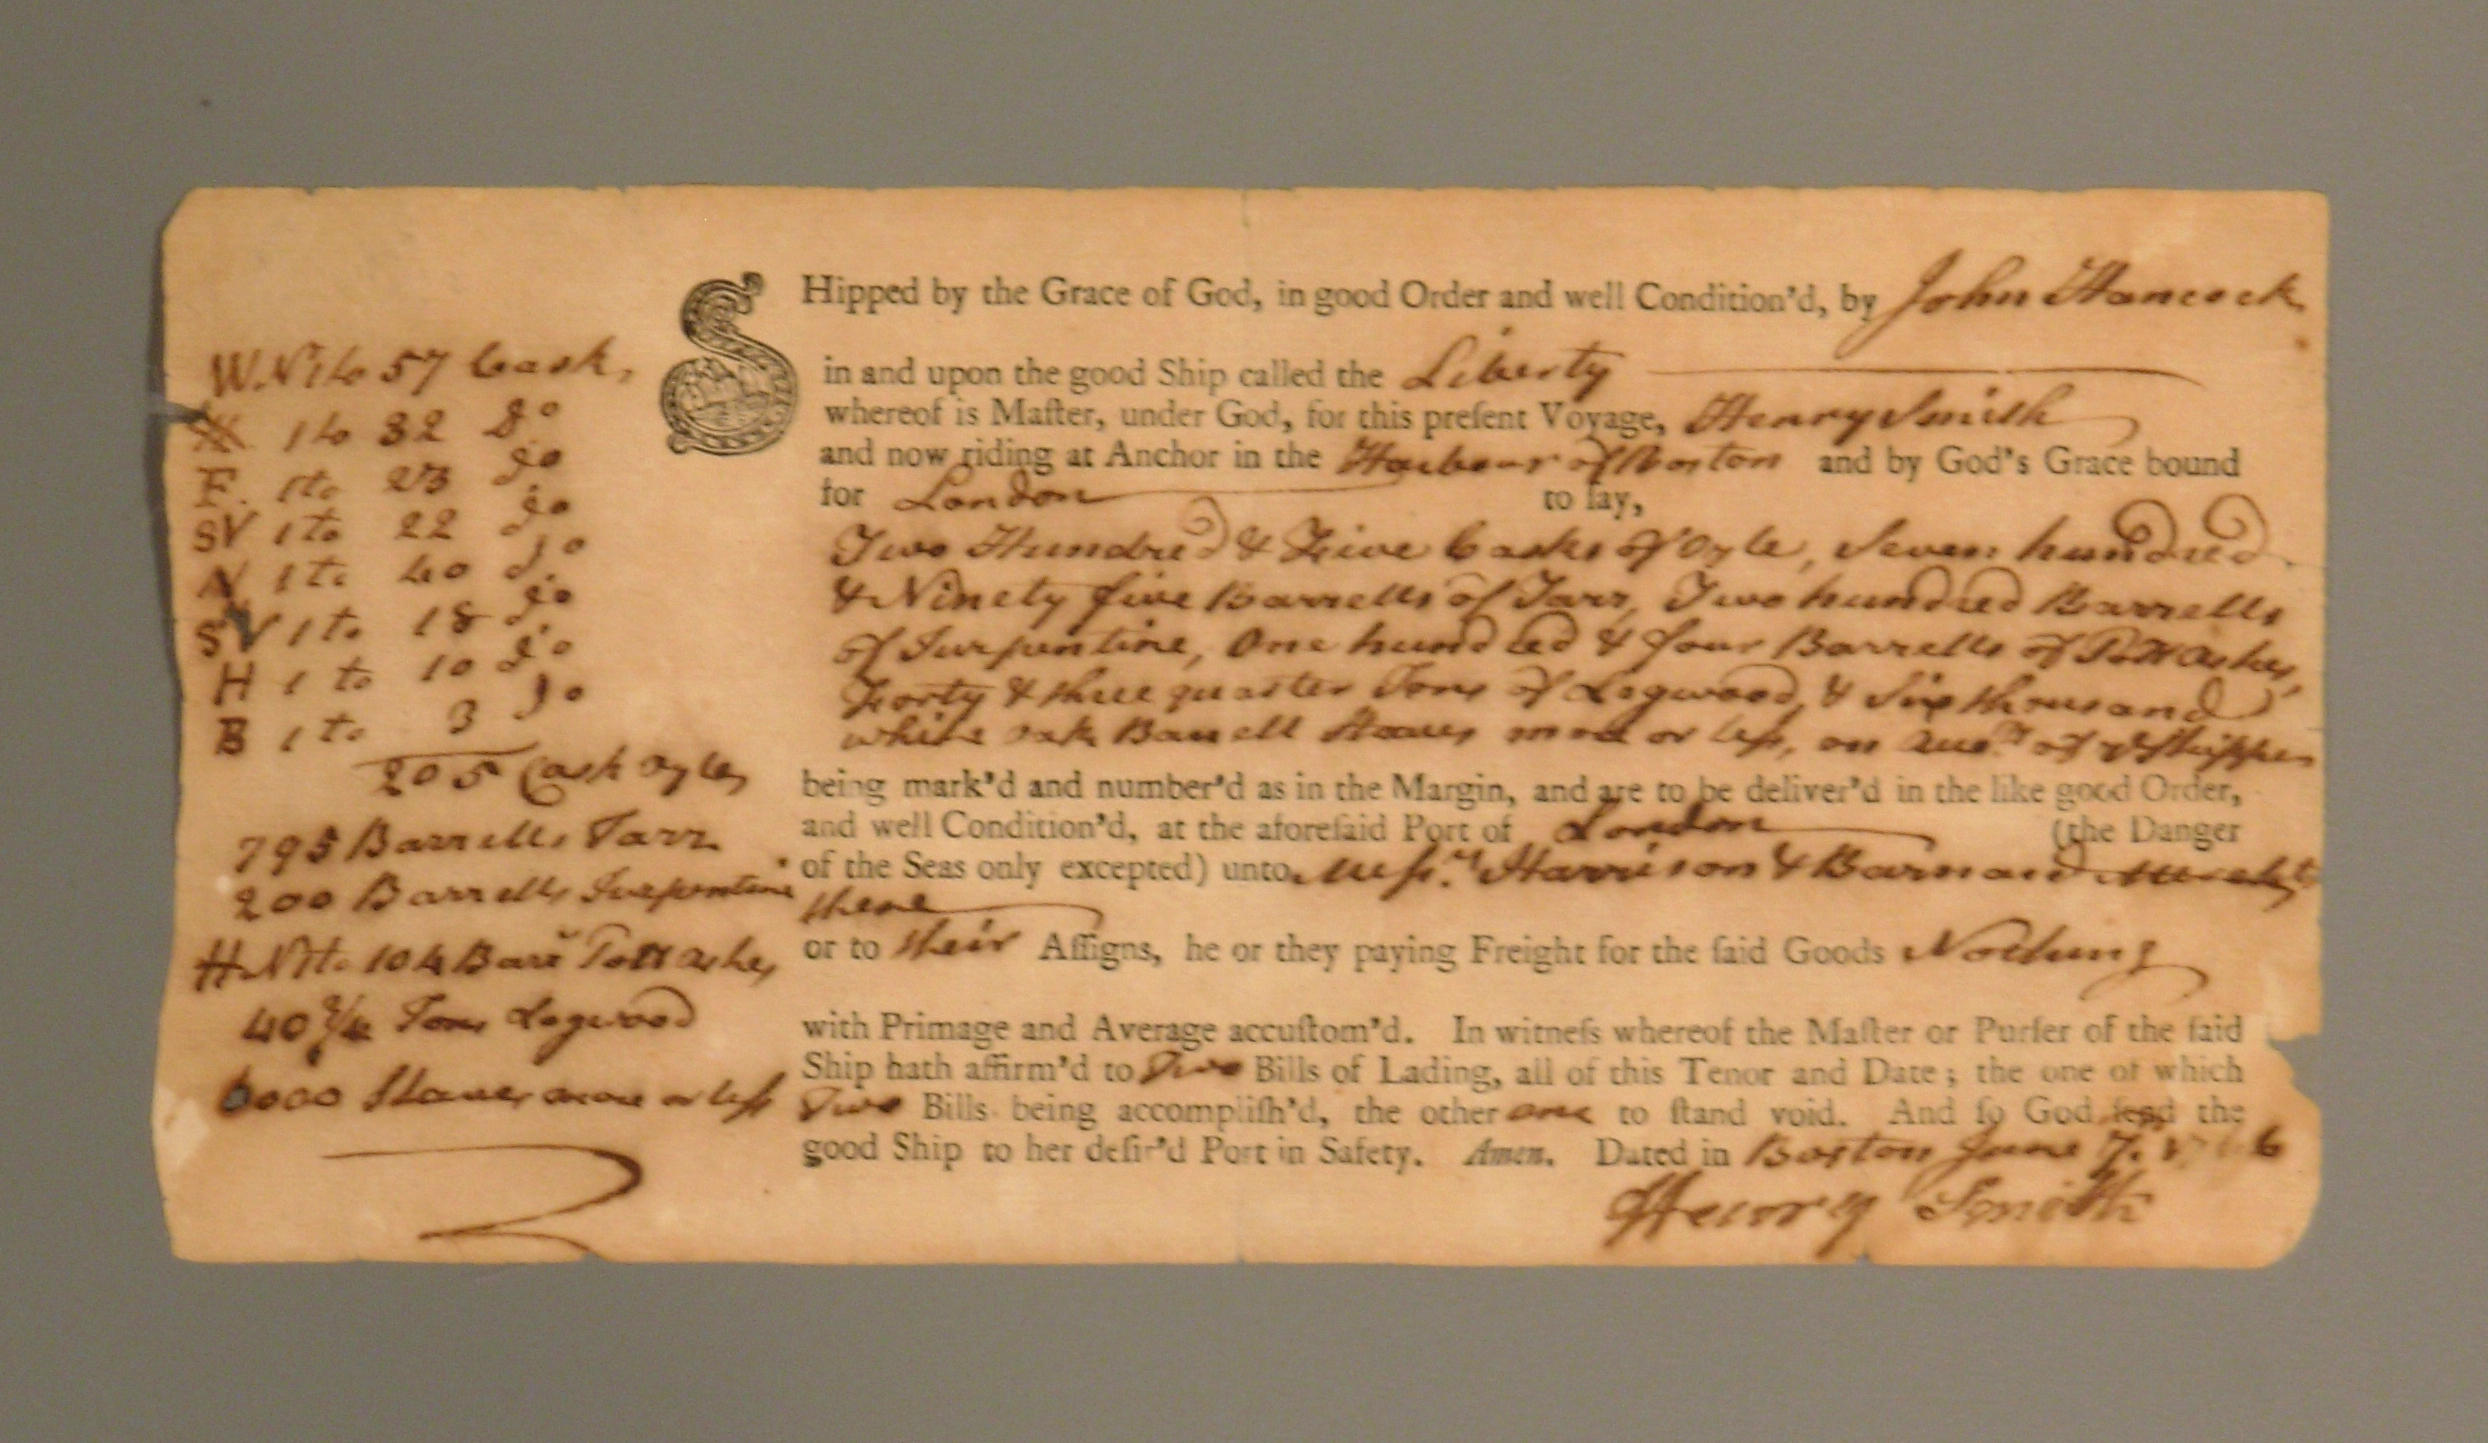 W. N 1 to 57 Cask,
1 to 32 do
F. 1 to 23 do
SV 1 to 22 do
N 1 to 40 do
SV 1 to 18 do
H 1 to 10 do
B 1 to 3 do
205 Cask Oyle,
795 Barrells Tarr
200 Barrells Turpentine
H N 1 to 104 Barr Pott ashes,
40 3/4 Tons Logwood
6000 Staves more or less
SHipped by the Grace of God, in good Order and well Condition'd, by John Hancock
in and upon the good Ship called the Liberty
whereof is Maſter, under God, for this preſent Voyage, Henry Smith
and now riding at Anchor in the Harbour of Boston and by God's Grace bound
for London to ſay,
Two Hundred & Five Casks of Oyle, Seven hundred
& Ninety five Barrells of Tarr, Two hundred Barrells
of Turpentine, One hundred & four Barrells of Pott ashes,
Forty & three quarter Tons of Logwood, & Six thousand
white oak Barrell Staves more or less, on of Shipper
being mark'd and number'd as in the Margin, and are to be deliver'd in the like good Order,
and well Condition'd, at the aforeſaid Port of London (the Danger
of the Seas only excepted) unto Messrs Harrison & Barnard
there
or to their Aſſigns, he or they paying Freight for the ſaid Goods Nothing
with Primage and Average accuſtom'd. In witneſs whereof the Maſter or Purſer of the ſaid
Ship hath affirm'd to Two Bills of Lading, all of this Tenor and Date; the one of which
Two Bills being accompliſh'd, the other one to ſtand void. And ſo God ſend the
good Ship to her deſir'd Port in Safety. Amen. Dated in Boston June 7.
Henry Smith